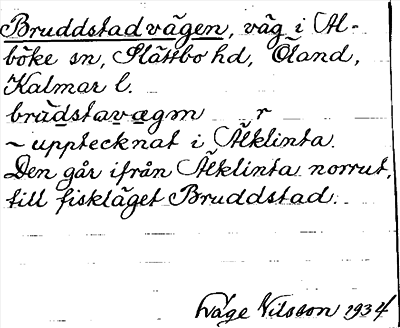 Bruddstadvägen, väg i Al-
böke sn, Slättbo hd, Öland,
Kalmar l.
brùdstavægm r
~ upptecknat i Älklinta.
Den går ifrån Älklinta norrut,
till fiskläget Bruddstad.
Wäge Nilsson 1934